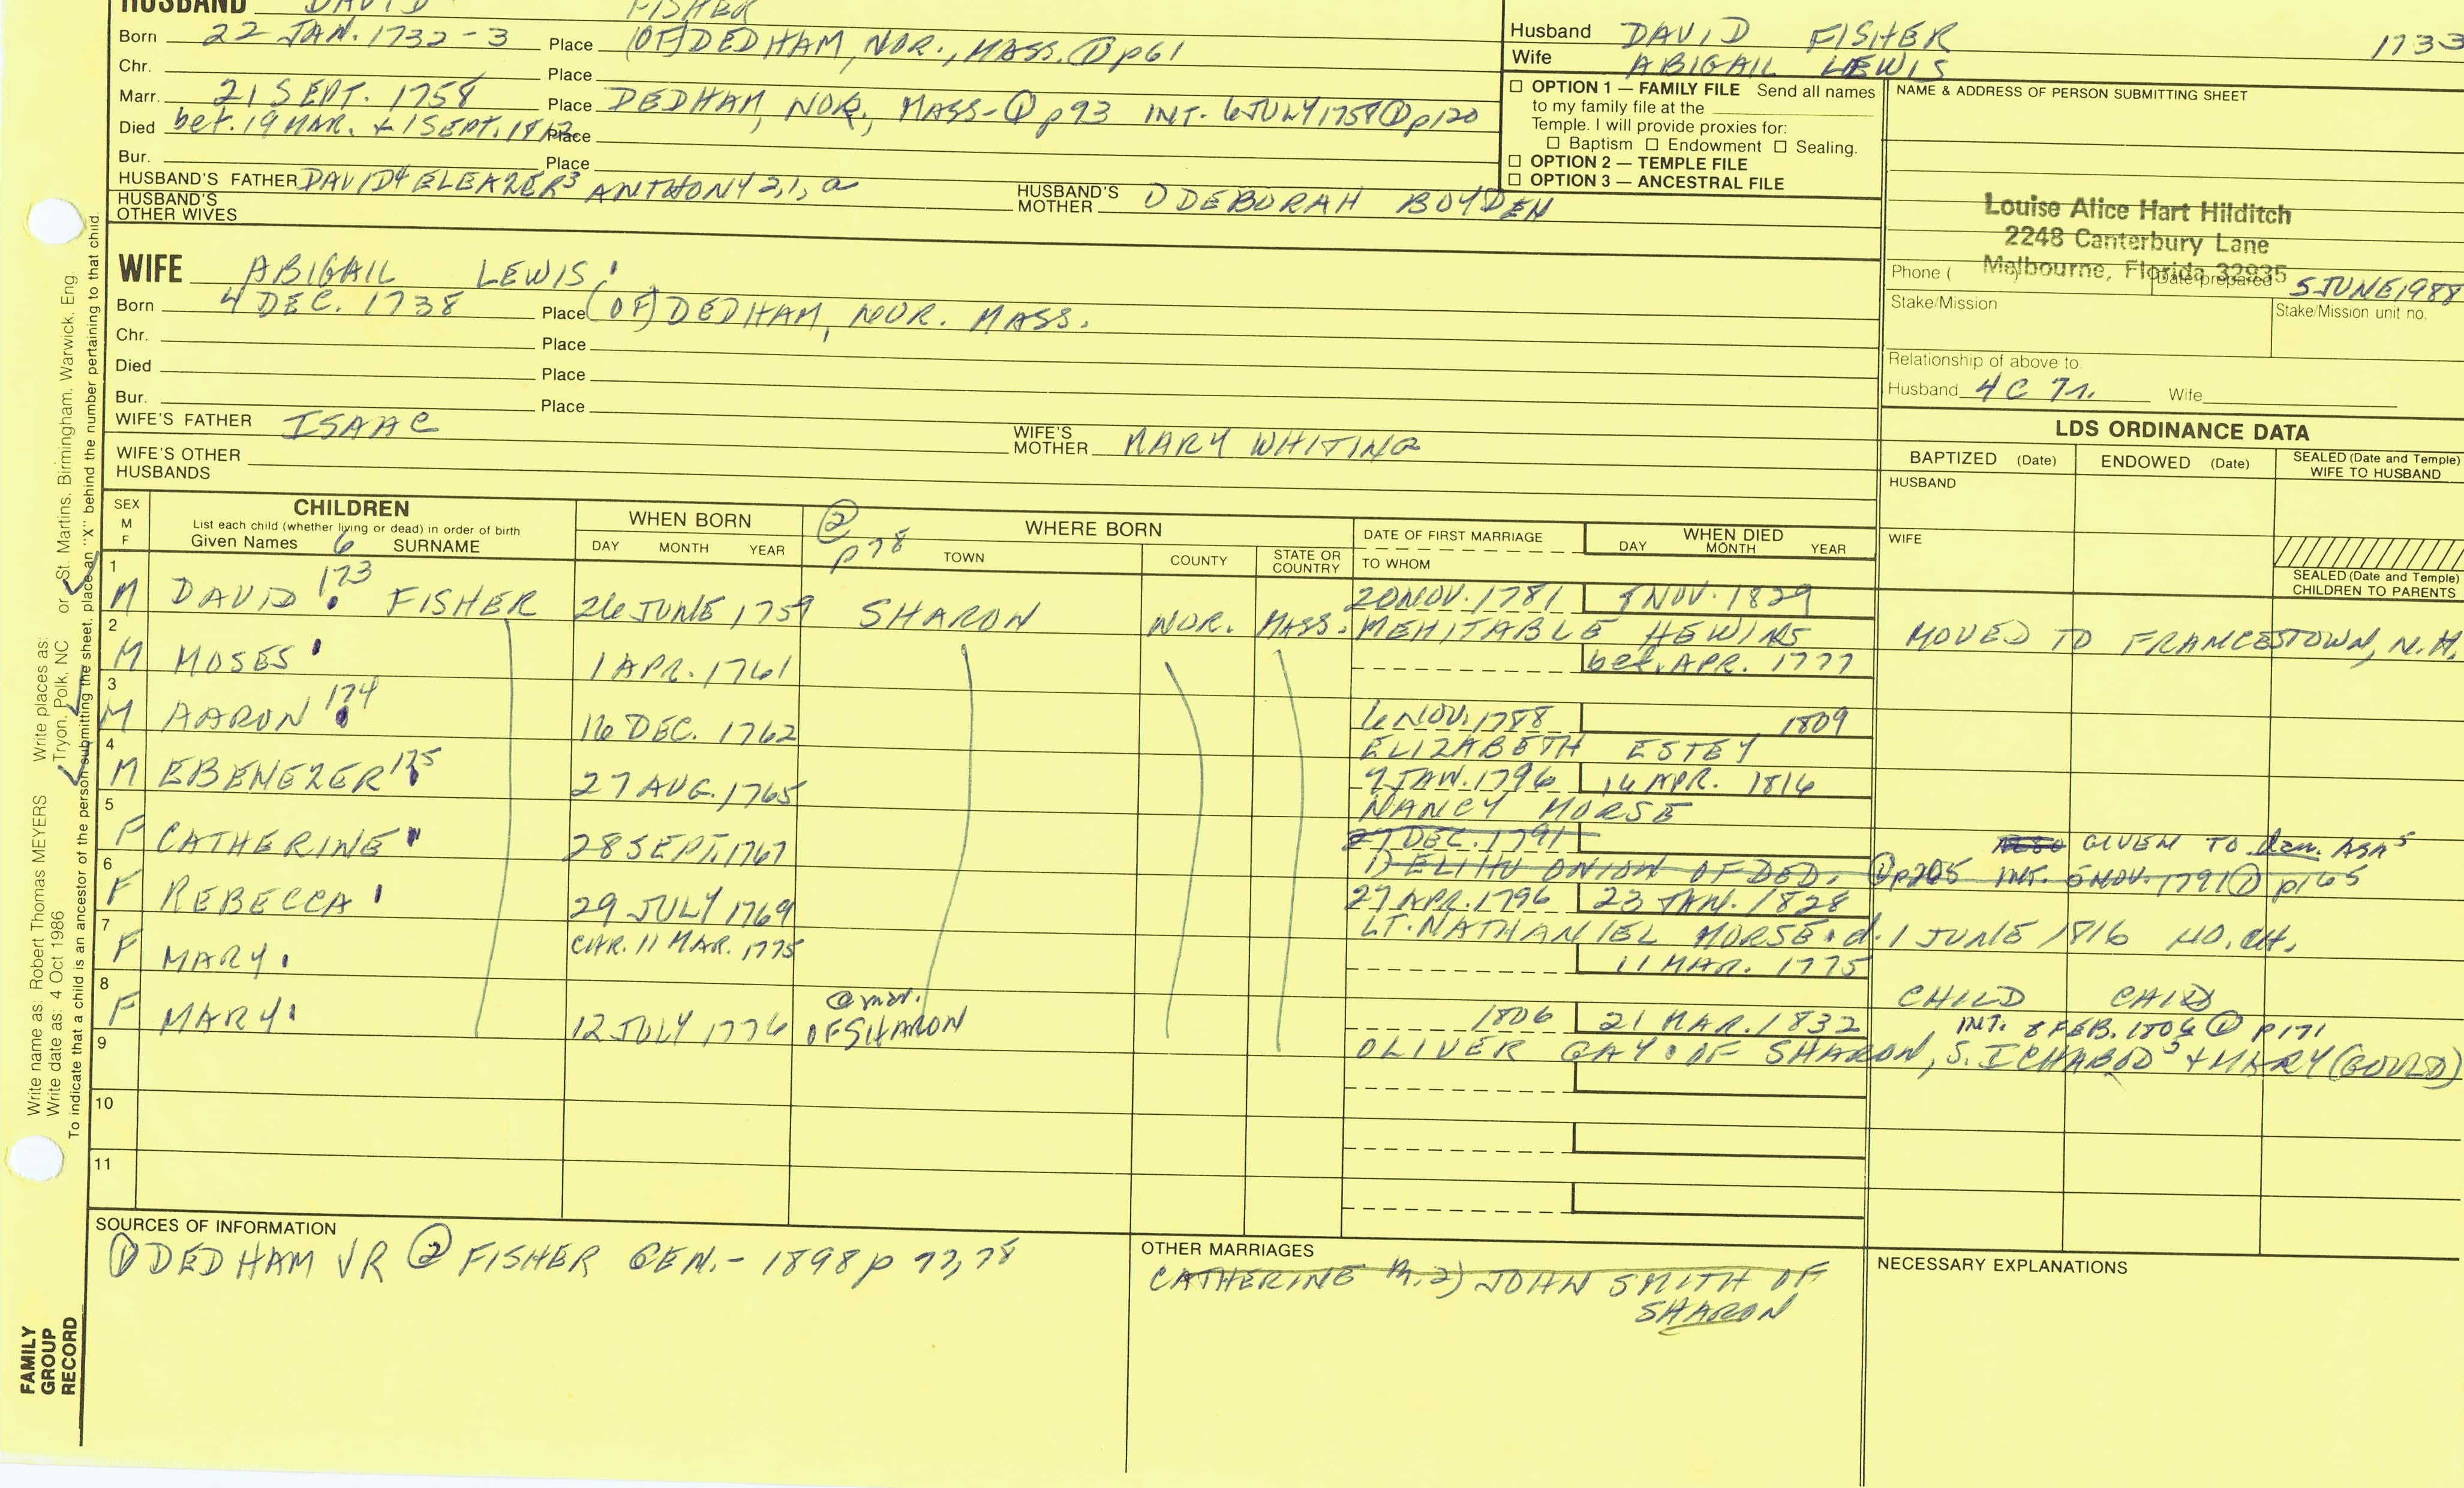 HUSBAND DAVID FISHER
Born 22 JAN. 1732-3 Place (OF) DEDHAM, NOR., MASS. ① p61
Chr. Place
Marr. 21 SEPT. 1758 Place DEDHAM, NOR., MASS-① p93 INT. 6 JULY 1758 ① p120
Died bet. 19 MAR. + 1 SEPT. 1812 Place
Bur. Place
HUSBAND'S FATHER DAVID4 ELEAZER3 ANTHONY 2,1, a HUSBAND'S MOTHER DEBORAH BOYDEN
HUSBAND'S OTHER WIVES
WIFE ABIGAIL LEWIS
Born 4 DEC. 1738 Place (OF) DEDHAM, NOR. MASS.
Chr. Place
Died Place
Bur. Place
WIFE'S FATHER ISAAC WIFE'S MOTHER MARY WHITING
WIFE'S OTHER HUSBANDS
Husband DAVID FISHER 1733
Wife ABIGAIL LEWIS
☐ OPTION 1 — FAMILY FILE Send all names
to my family file at the
Temple. I will provide proxies for:
☐ Baptism ☐ Endowment ☐ Sealing.
☐ OPTION 2 — TEMPLE FILE
☐ OPTION 3 — ANCESTRAL FILE
NAME & ADDRESS OF PERSON SUBMITTING SHEET
Louise Alice Hart Hilditch
2248 Canterbury Lane
Melbourne, Florida 32935
Phone ( ) Date prepared 5 JUNE 1988
Stake/Mission Stake/Mission unit no.
Relationship of above to:
Husband 4 C 7r. Wife
LDS ORDINANCE DATA
BAPTIZED (Date) ENDOWED (Date) SEALED (Date and Temple) WIFE TO HUSBAND
HUSBAND
WIFE
SEALED (Date and Temple) CHILDREN TO PARENTS
SEX M F
CHILDREN
List each child (whether living or dead) in order of birth
Given Names 6 SURNAME
WHEN BORN
DAY MONTH YEAR
② p78
WHERE BORN
TOWN COUNTY STATE OR COUNTRY
DATE OF FIRST MARRIAGE
TO WHOM
WHEN DIED
DAY MONTH YEAR
1 M DAVID 173 FISHER 26 JUNE 1759 SHARON NOR. MASS. 20 NOV. 1781 8 NOV. 1829
MEHITABLE HEWINS MOVED TO FRANCESTOWN, N.H.
2 M MOSES 1 APR. 1761 bef. APR. 1777
3 M AARON 174 16 DEC. 1762 6 NOV. 1788 1809
ELIZABETH ESTEY
4 M EBENEZER 175 27 AUG. 1765 7 JAN. 1796 14 APR. 1816
NANCY MORSE
5 F CATHERINE 28 SEPT. 1767 27 DEC. 1791 GIVEN TO ASA5
1) ELIHU ONION OF DED. ① p205 INT. 5 NOV. 1791 ① p165
6 F REBECCA 29 JULY 1769 27 APR. 1796 23 JAN. 1828
LT. NATHANIEL MORSE d. 1 JUNE 1816 NO. CH.
7 F MARY CHR. 11 MAR. 1775 11 MAR. 1775
CHILD CHILD
8 F MARY 12 JULY 1776 @ mar. OF SHARON 1806 21 MAR. 1832 INT. 8 FEB. 1806 ① p171
OLIVER GAY OF SHARON, S. ICHABOD5 + MARY (GOULD)
9
10
11
SOURCES OF INFORMATION
① DEDHAM VR ② FISHER GEN.- 1898 p 77,78
OTHER MARRIAGES
CATHERINE M. 2) JOHN SMITH OF
SHARON
NECESSARY EXPLANATIONS
Write name as: Robert Thomas MEYERS Write places as: Tryon, Polk, NC or St. Martins, Birmingham, Warwick, Eng
Write date as: 4 Oct 1986
To indicate that a child is an ancestor of the person submitting the sheet, place an "X" behind the number pertaining to that child
FAMILY
GROUP
RECORD